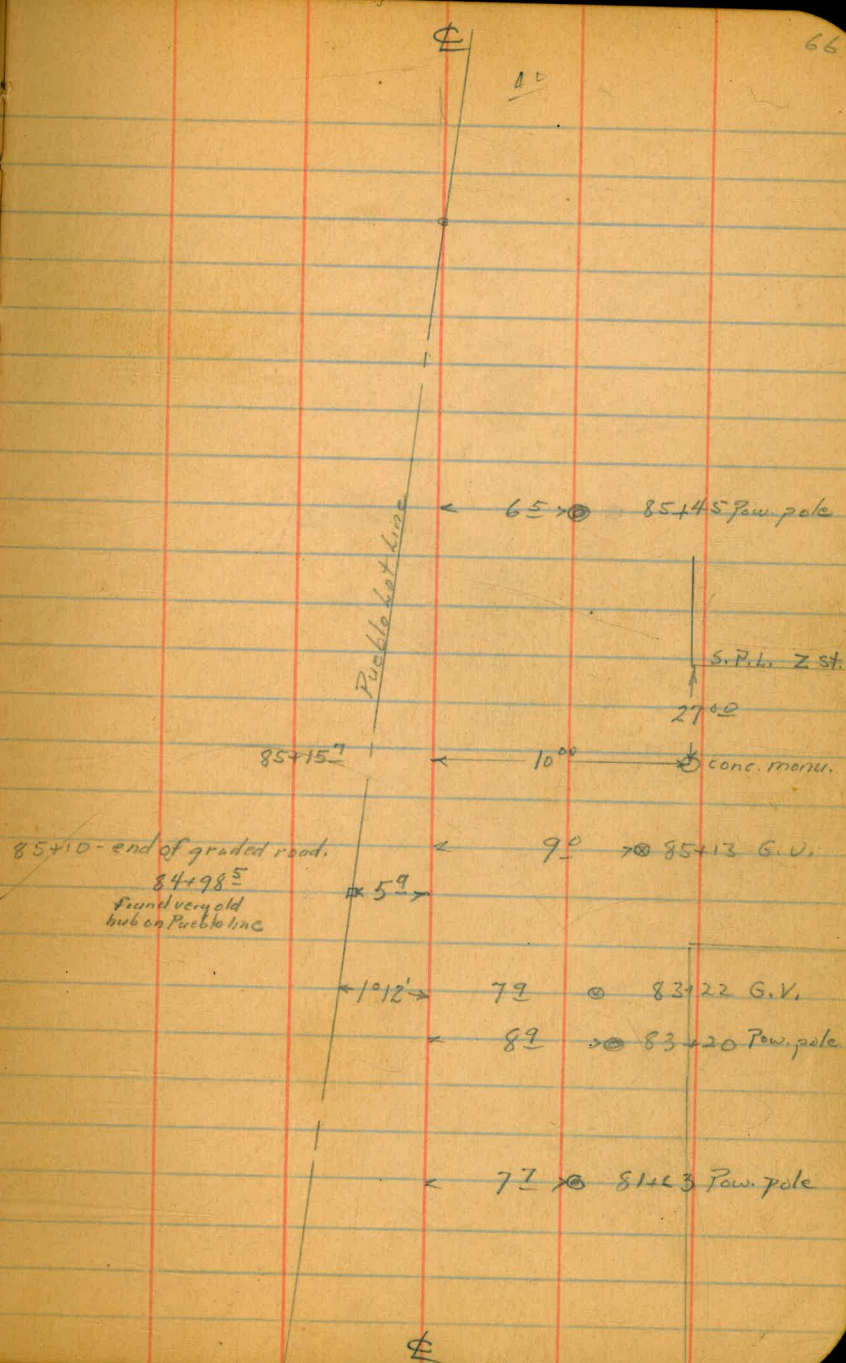 66
℄
Pueblo Lot Line
6 5 85+45 Pow. pole
S.P.L. Z st.
27 00
85+15 7 10 00 conc. monu.
85+10 - end of graded road. 9 0 85+13 G.V.
84+98 5 5 9
found very old
hub on Pueblo line
1°12' 7 9 83+22 G.V.
8 9 83+20 Pow. pole
7 7 Pow. pole
℄